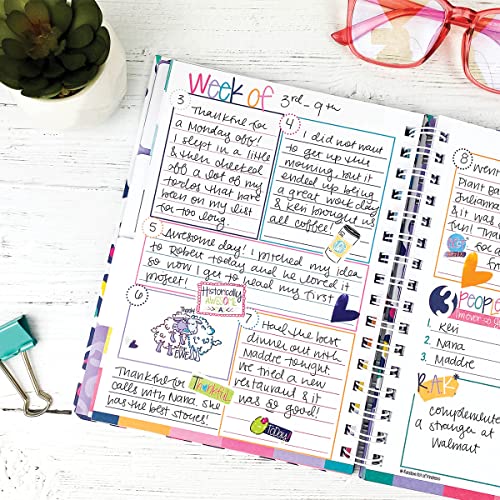 Week of 3rd - 9th
3
Thankful for
a Monday off!
I slept in a little
& then checked
off a lot of my
todos that have
been on my list
for too long.
4
I did not want
to get up this
morning, but it
ended up being
a great work day
& Ken brought us
all coffee!
5
Awesome day! I pitched my idea
to Robert today and he loved it
so now I get to lead my first
project!
Historically
Awesome
6
Thankful for
calls with Nana, she
has the best stories!
Thankful
7
Had the best
dinner out with
Maddie tonight.
We tried a new
restaurant & it
was so good!
Today!
8
Went
Plant
Julianna
& it was
fun!
3 PEOPLE
I'm ever so
1. Ken
2. Nana
3. Maddie
R.A.K*
complemented
a stranger at
Walmart
*Random Act of Kindness